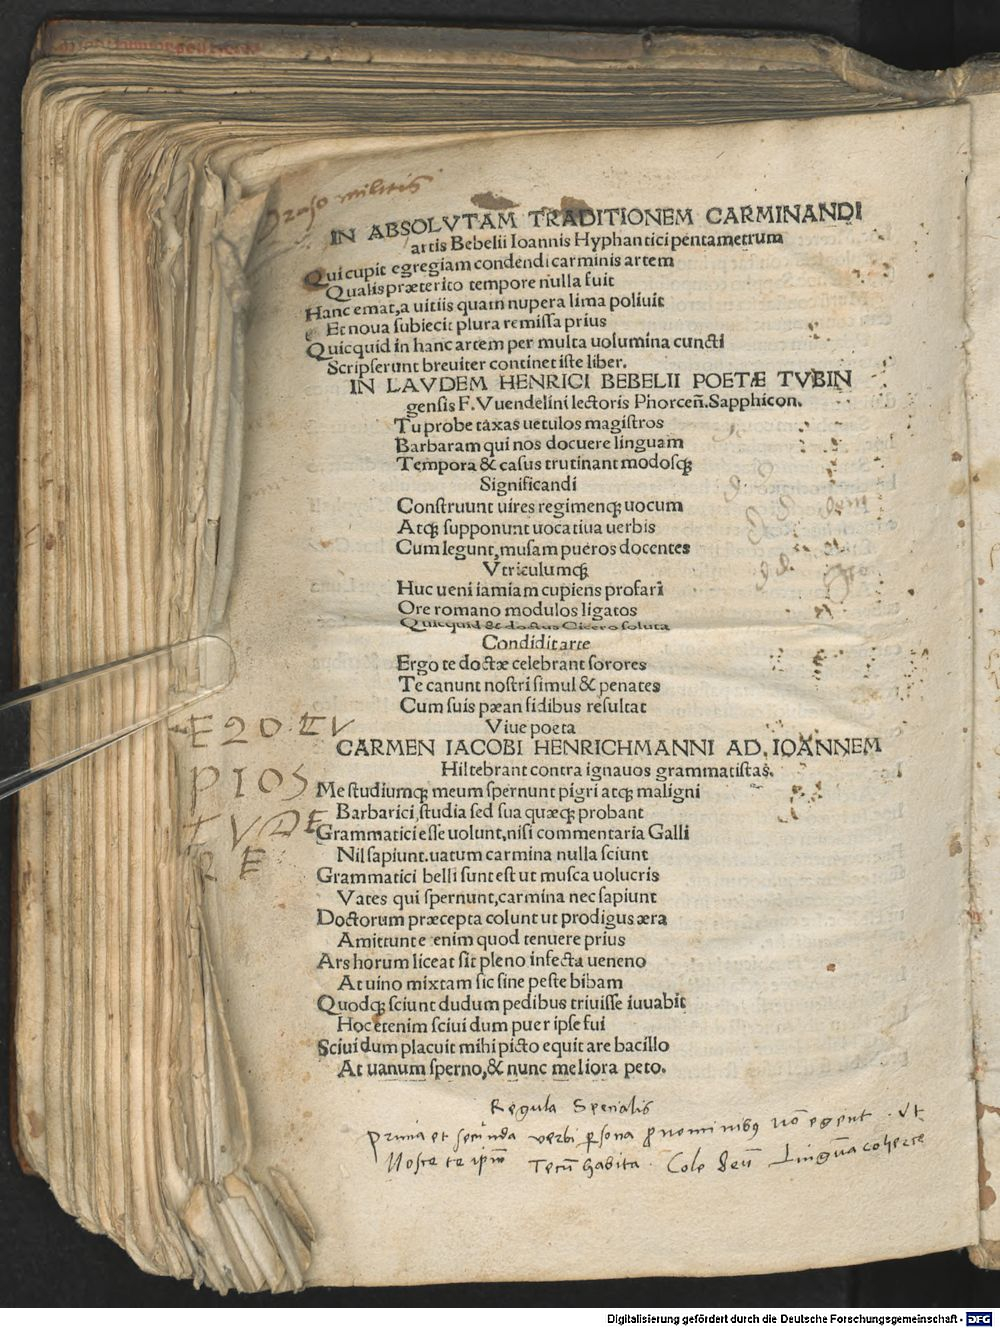 Traso militis
IN ABSOLVTAM TRADITIONEM CARMINANDI
artis Bebelii Ioannis Hyphantici pentametrum
Qui cupit egregiam condendi carminis artem
Qualis præterito tempore nulla fuit
Hanc emat, a uitiis quam nupera lima poliuit
Et noua subiecit plura remissa prius
Quicquid in hanc artem per multa uolumina cuncti
Scripserunt breuiter continet iste liber.
IN LAVDEM HENRICI BEBELII POETÆ TVBIN
gensis F. Vuendelini lectoris Phorceñ. Sapphicon.
Tu probe taxas uetulos magistros
Barbaram qui nos docuere linguam
Tempora & casus trutinant modosqꝫ
Significandi
Construunt uires regimenqꝫ uocum
Atqꝫ supponunt uocatiua uerbis
Cum legunt, musam pueros docentes
Vtriculumqꝫ
Huc ueni iamiam cupiens profari
Ore romano modulos ligatos
Quicquid & doctus Cicero soluta
Condidit arte
Ergo te doctæ celebrant sorores
Te canunt nostri simul & penates
Cum suis pæan fidibus resultat
Viue poeta
CARMEN IACOBI HENRICHMANNI AD. IOANNEM
Hiltebrant contra ignauos grammatistas.
Me studiumqꝫ meum spernunt pigri atqꝫ maligni
Barbarici, studia sed sua quæqꝫ probant
Grammatici esse uolunt, nisi commentaria Galli
Nil sapiunt. uatum carmina nulla sciunt
Grammatici belli sunt est ut musca uolucris
Vates qui spernunt, carmina nec sapiunt
Doctorum præcepta colunt ut prodigus æra
Amittunt etenim quod tenuere prius
Ars horum liceat sit pleno infecta ueneno
At uino mixtam sic sine peste bibam
Quodqꝫ sciunt dudum pedibus triuisse iuuabit
Hoc etenim sciui dum puer ipse fui
Sciui dum placuit mihi picto equitare bacillo
At uanum sperno, & nunc meliora peto.
Regula Specialis
Prima et secūnda verbi ꝑsona ꝓnominibꝰ nō egent . Vt
Nosce te ipm̄ Tecū habita . Cole deū Linguā coherce
Digitalisierung gefördert durch die Deutsche Forschungsgemeinschaft - DFG